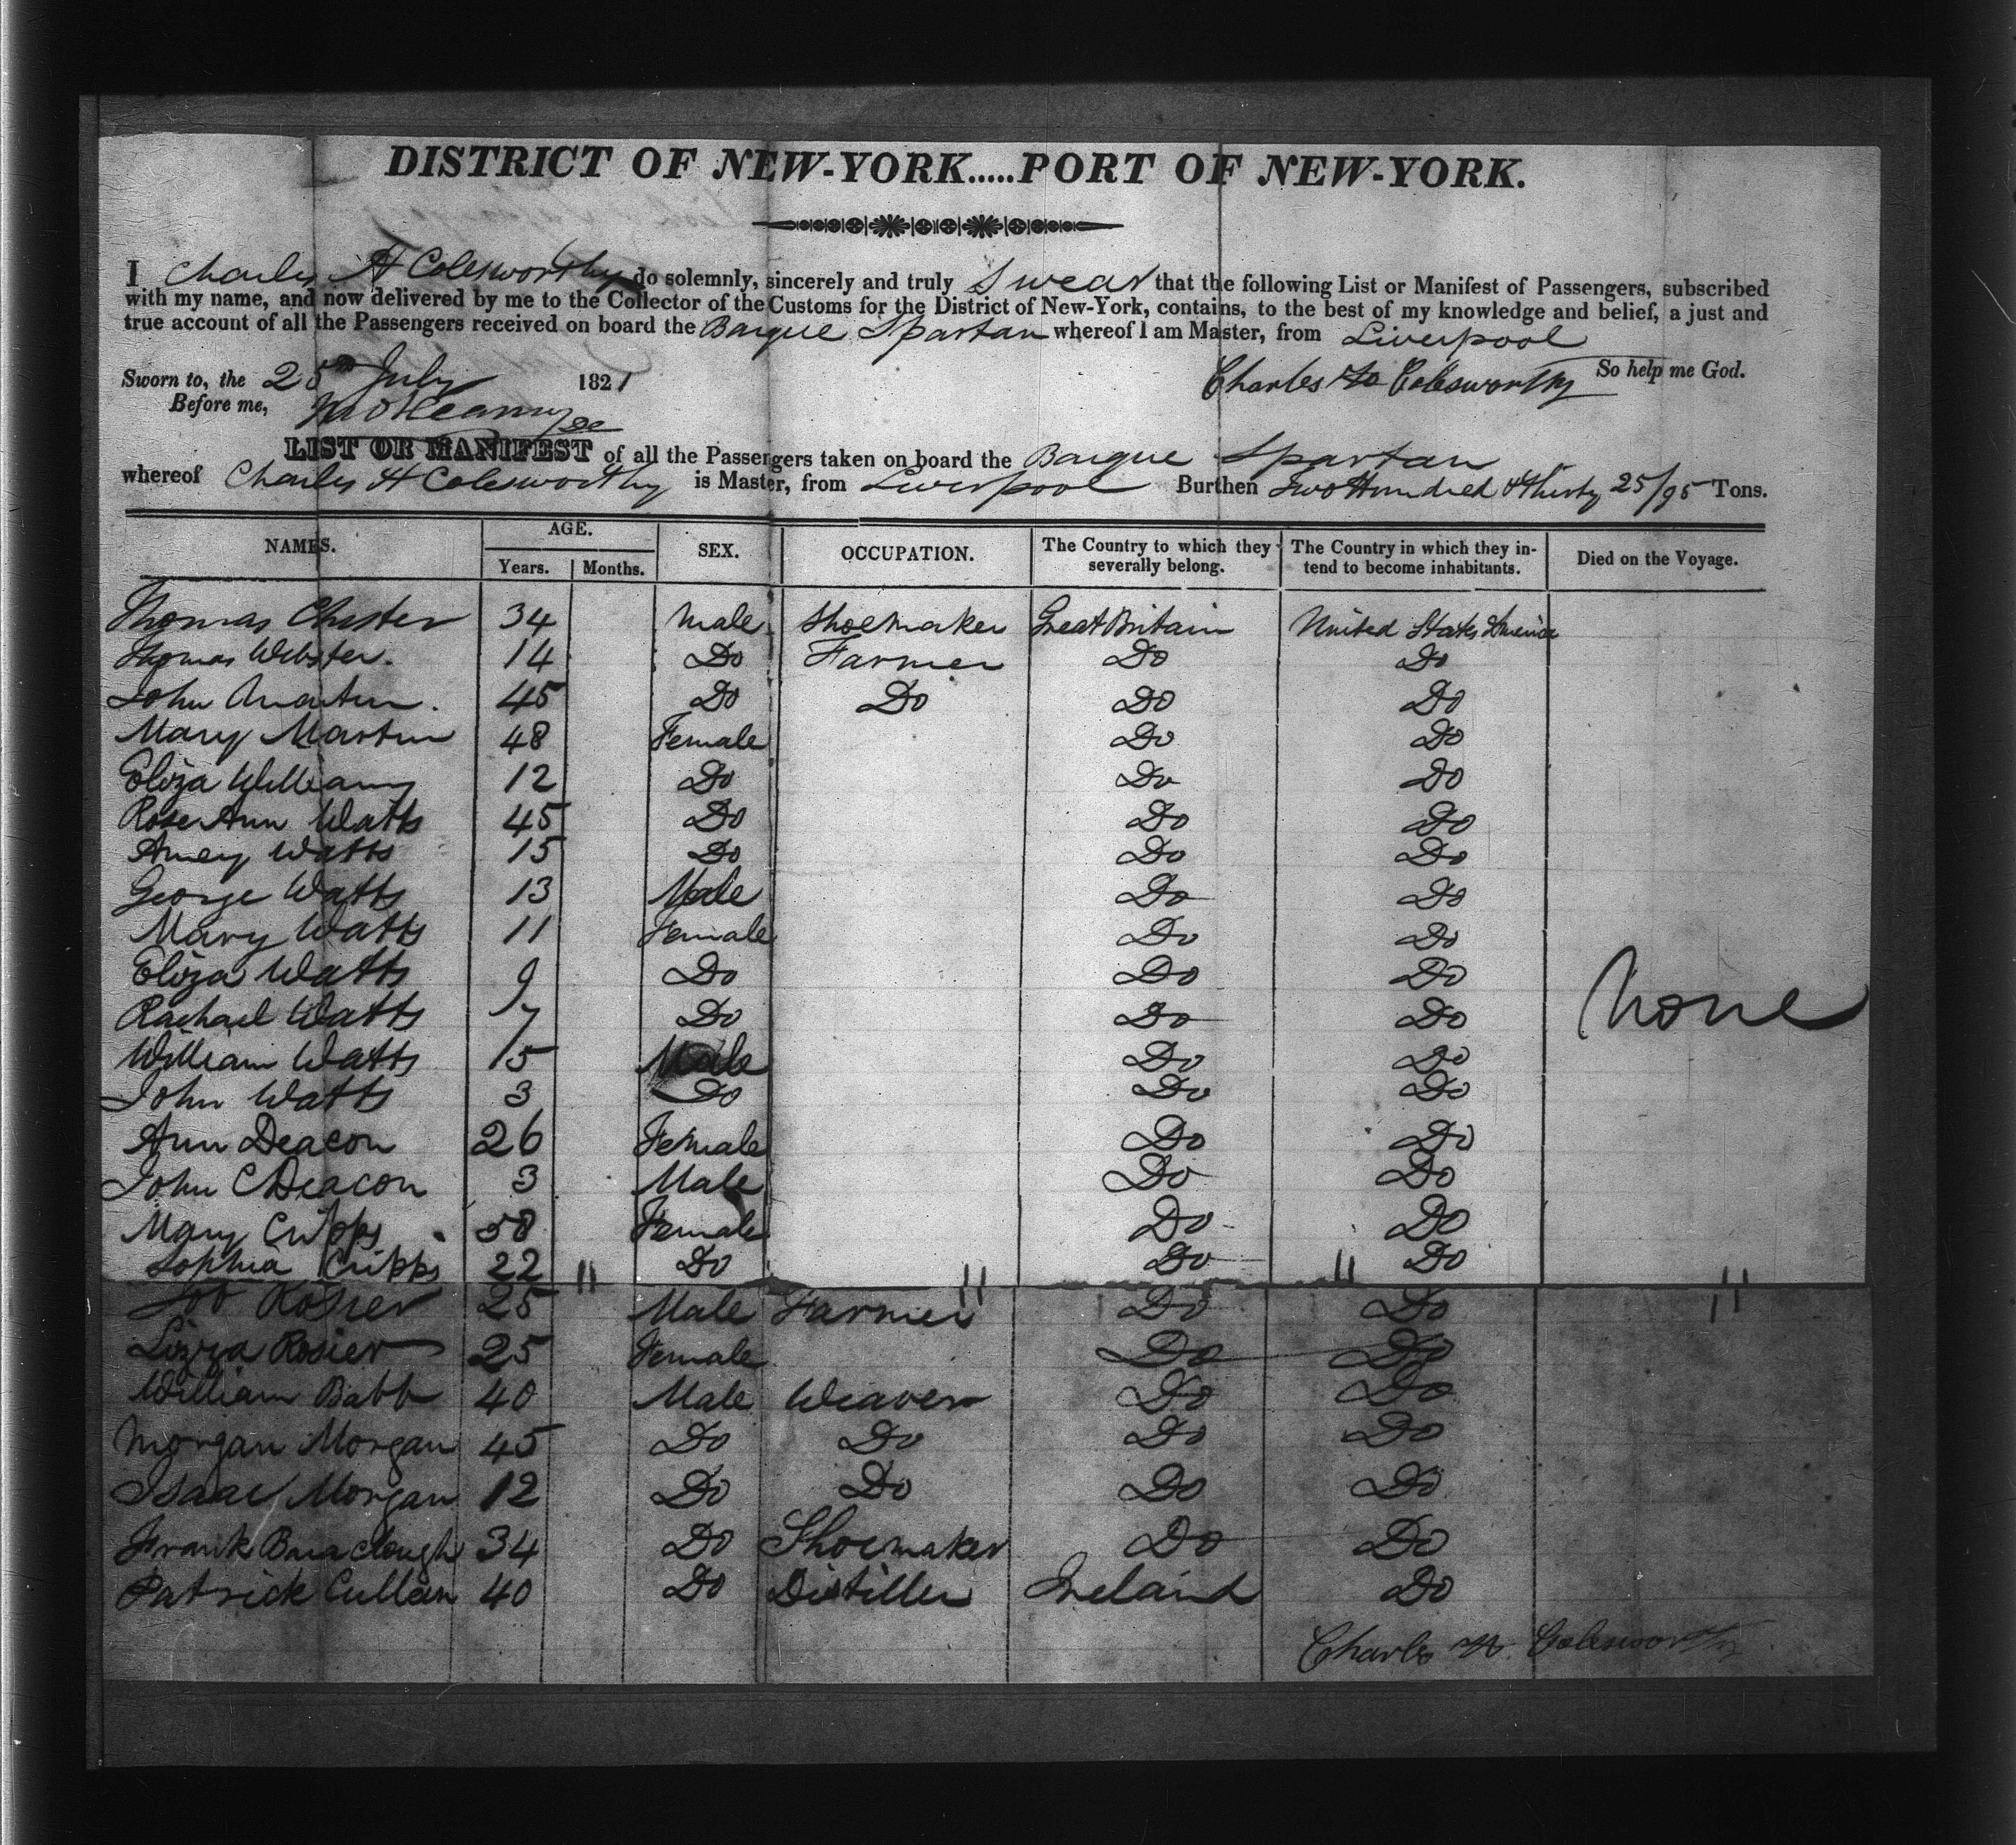 DISTRICT OF NEW-YORK.....PORT OF NEW-YORK.
I Charles H Colesworthy do solemnly, sincerely and truly Swear that the following List or Manifest of Passengers, subscribed
with my name, and now delivered by me to the Collector of the Customs for the District of New-York, contains, to the best of my knowledge and belief, a just and
true account of all the Passengers received on board the Barque Spartan whereof I am Master, from Liverpool
Sworn to, the 25th July 1821 Charles H Colesworthy So help me God.
Before me,
LIST OR MANIFEST of all the Passengers taken on board the Barque Spartan
whereof Charles H Colesworthy is Master, from Liverpool Burthen Two Hundred & Thirty 25/95 Tons.
NAMES. AGE. Years. Months. SEX. OCCUPATION. The Country to which they severally belong. The Country in which they intend to become inhabitants. Died on the Voyage.
Thomas Chester 34 Male Shoemaker Great Britain United States America
Thomas Webster. 14 Do Farmer Do Do
John Martin. 45 Do Do Do Do
Mary Martin 48 Female Do Do
Eliza Williams 12 Do Do Do
Rose Ann Watts 45 Do Do Do
Amey Watts 15 Do Do Do
George Watts 13 Male Do Do
Mary Watts 11 Female Do Do
Eliza Watts 9 Do Do Do
Rachael Watts 7 Do Do Do None
William Watts 5 Male Do Do
John Watts 3 Do Do Do
Ann Deacon 26 Female Do Do
John C Deacon 3 Male Do Do
Mary Cripps 58 Female Do Do
Sophia Cripps 22 " Do " Do " Do "
Job Rosier 25 Male Farmer Do Do
Lizza Rosier 25 Female Do Do
William Babb 40 Male Weaver Do Do
Morgan Morgan 45 Do Do Do Do
Isaac Morgan 12 Do Do Do Do
Frank Baraclough 34 Do Shoemaker Do Do
Patrick Cullen 40 Do Distiller Ireland Do
Charles H. Colesworthy